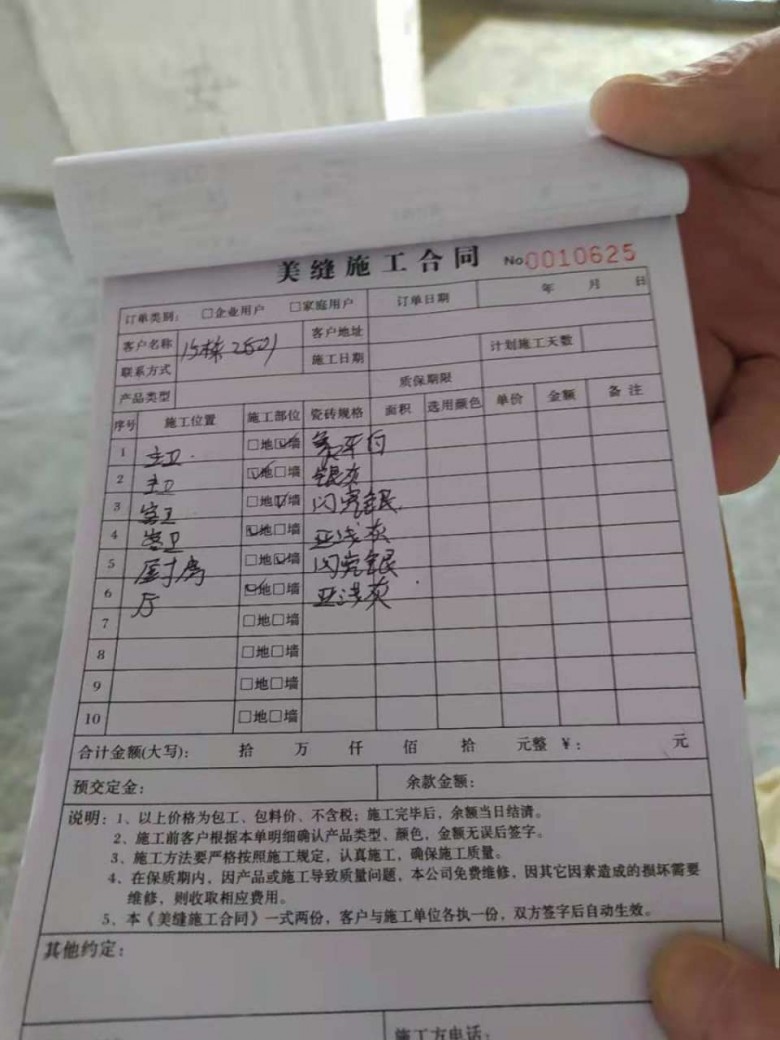 美缝施工合同 No 0010625
订单类别: □企业用户 □家庭用户 订单日期 年 月 日
客户名称 15栋2501 客户地址
联系方式 施工日期 计划施工天数
产品类型 质保期限
序号 施工位置 施工部位 瓷砖规格 面积 选用颜色 单价 金额 备注
1 主卫 □地☑墙
2 主卫 ☑地□墙 银灰
3 客卫 □地☑墙 闪亮银
4 客卫 ☑地□墙 亚浅灰
5 厨房 □地☑墙 闪亮银
6 厅 ☑地□墙 亚浅灰
7 □地□墙
8 □地□墙
9 □地□墙
10 □地□墙
合计金额(大写): 拾 万 仟 佰 拾 元整 ¥: 元
预交定金: 余款金额:
说明: 1、以上价格为包工、包料价、不含税; 施工完毕后, 余额当日结清。
2、施工前客户根据本单明细确认产品类型、颜色, 金额无误后签字。
3、施工方法要严格按照施工规定, 认真施工, 确保施工质量。
4、在保质期内, 因产品或施工导致质量问题, 本公司免费维修, 因其它因素造成的损坏需要
维修, 则收取相应费用。
5、本《美缝施工合同》一式两份, 客户与施工单位各执一份, 双方签字后自动生效。
其他约定:
施工方电话: